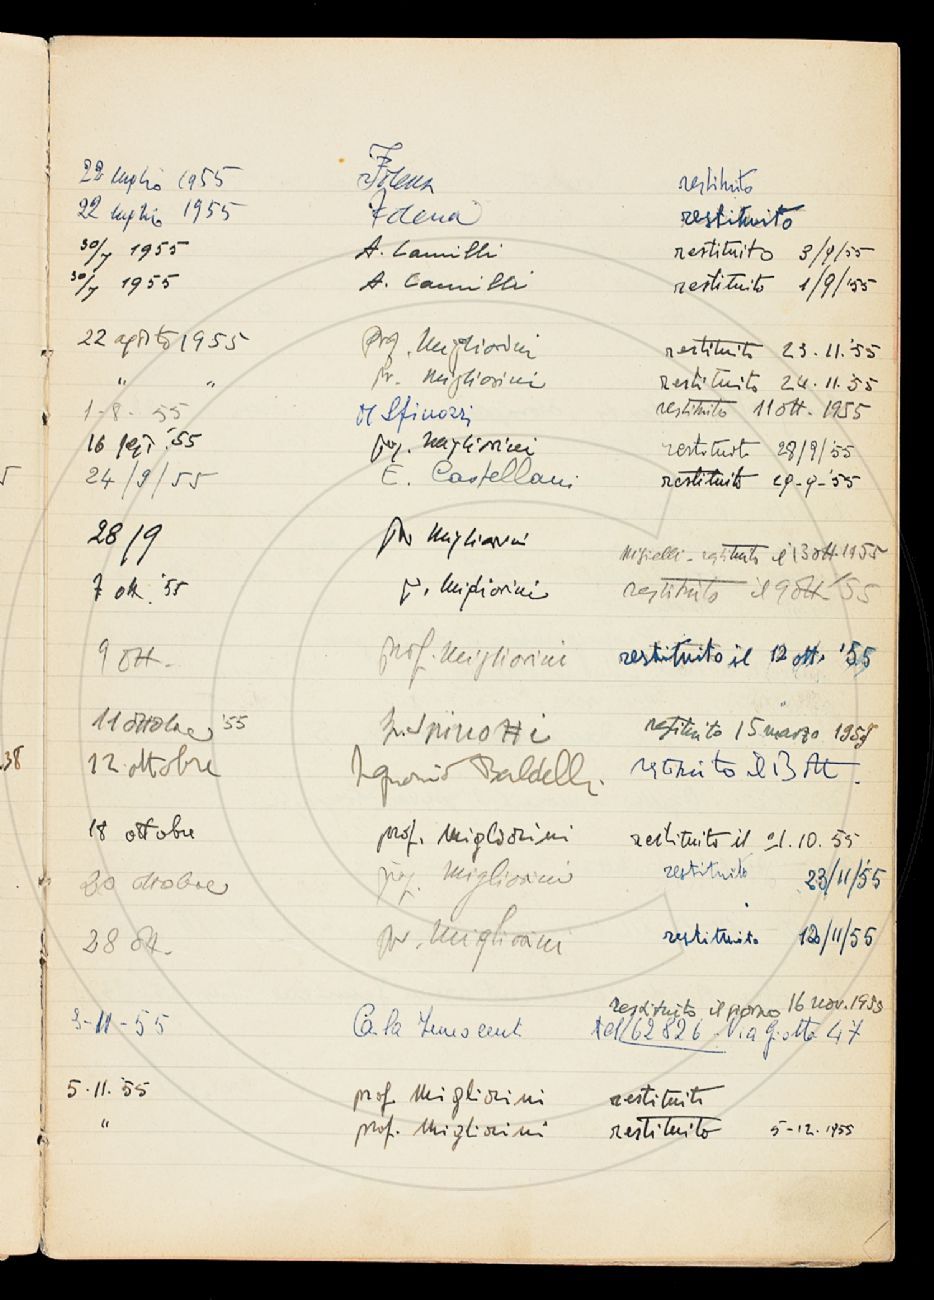 22 luglio 1955 Folena restituito
22 luglio 1955 Folena restituito
30/7 1955 A. Camilli restituito 3/9/55
30/7 1955 A. Camilli restituito 1/9/'55
22 agosto 1955 prof. Migliorini restituito 23.11.'55
" " pr. Migliorini restituito 24.11.'55
1-8-55 restituito 11 ott. 1955
16 '55 prof. Migliorini restituito 28/9/'55
24/9/55 E. Castellani restituito 29-9-'55
28/9 Migliorini restituito il 13 ott. 1955
7 ott. '55 p. Migliorini restituito il 9 ott '55
9 ott. prof. Migliorini restituito il 12 ott. '55
11 ottobre '55 Spinotti restituito 15 marzo
12 ottobre Ignazio Baldelli. restituito il 13 ott.
18 ottobre prof. Migliorini restituito il 21.10.55
20 ottobre prof. Migliorini restituito 23/11/55
28 ott. prof. Migliorini restituito /11/55
restituito il giorno 16 nov. 1955
3-11-55 Carla Innocenti tel. 62826 Via Giotto 47
5.11.'55 prof. Migliorini restituito
" prof. Migliorini restituito 5-12.1955
38
5